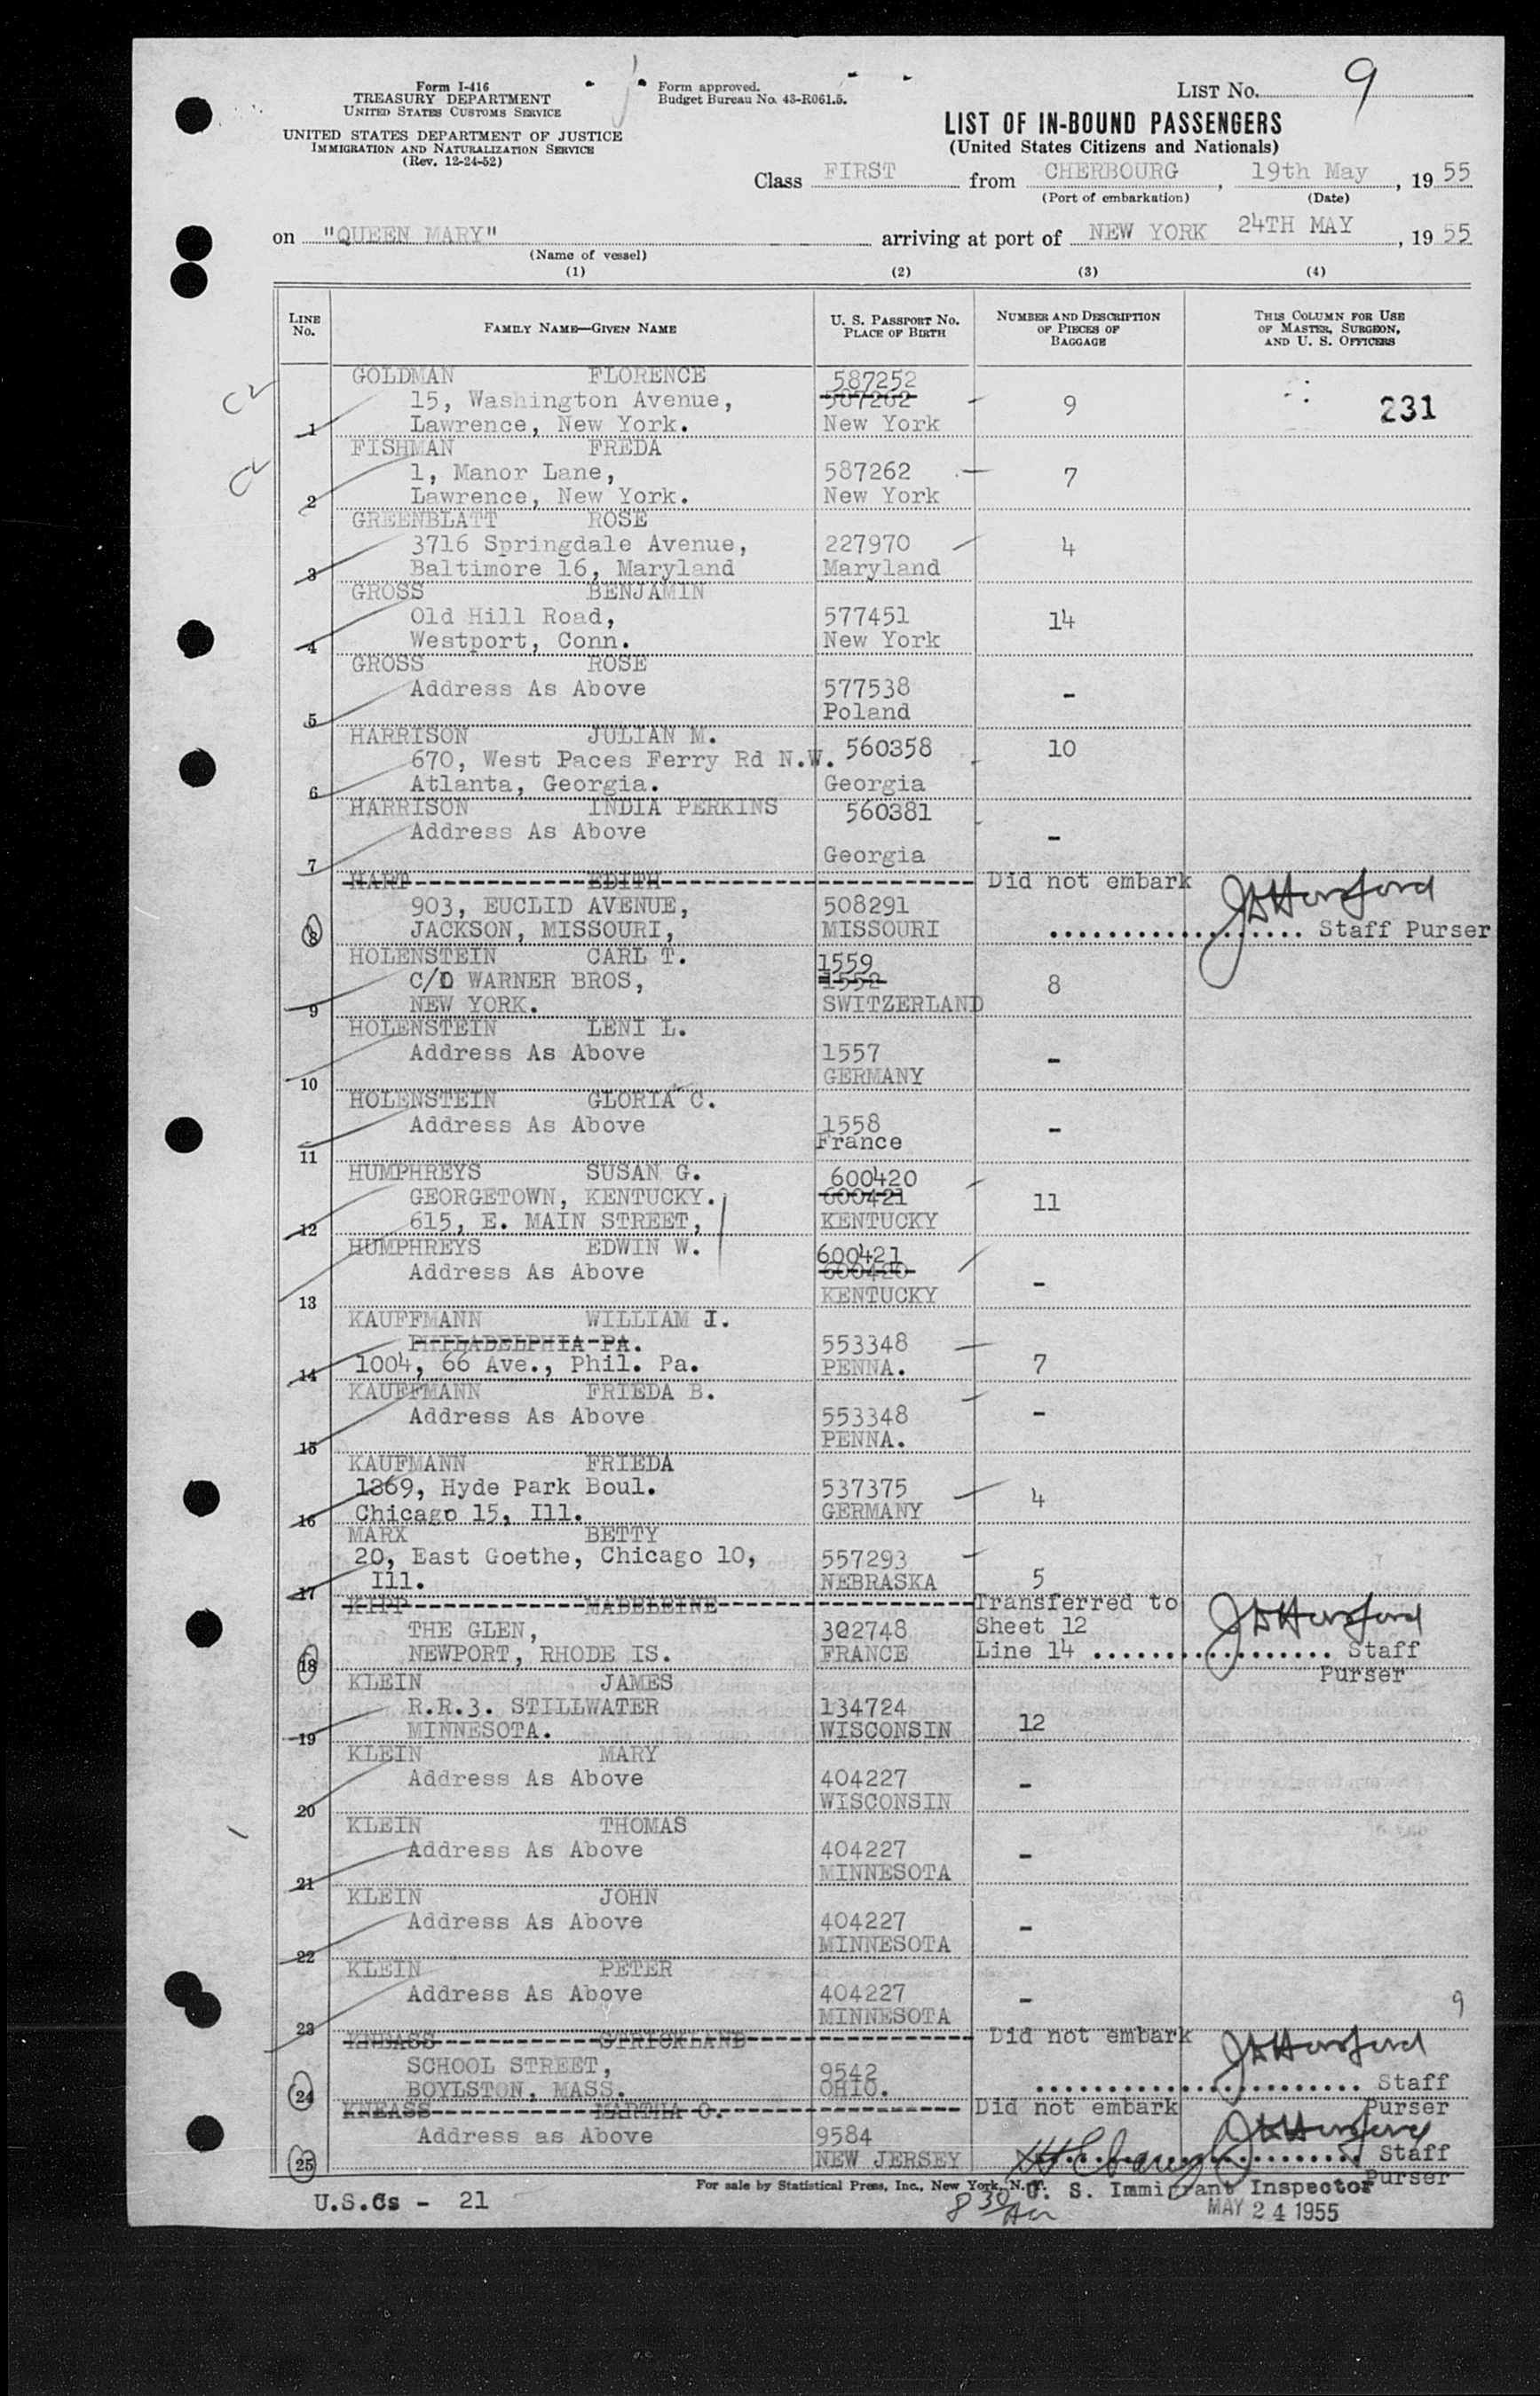 Form I-416
TREASURY DEPARTMENT
UNITED STATES CUSTOMS SERVICE
UNITED STATES DEPARTMENT OF JUSTICE
IMMIGRATION AND NATURALIZATION SERVICE
(Rev. 12-24-52)
Form approved.
Budget Bureau No. 43-R061.5.
LIST No. 9
LIST OF IN-BOUND PASSENGERS
(United States Citizens and Nationals)
Class FIRST from CHERBOURG, 19th May, 1955
(Port of embarkation) (Date)
on "QUEEN MARY" arriving at port of NEW YORK 24TH MAY, 1955
(Name of vessel)
(1) (2) (3) (4)
LINE No. FAMILY NAME—GIVEN NAME U. S. PASSPORT NO. PLACE OF BIRTH NUMBER AND DESCRIPTION OF PIECES OF BAGGAGE THIS COLUMN FOR USE OF MASTER, SURGEON, AND U. S. OFFICERS
GOLDMAN FLORENCE 587252
15, Washington Avenue, 587262 9 231
1 Lawrence, New York. New York
FISHMAN FREDA
1, Manor Lane, 587262 7
2 Lawrence, New York. New York
GREENBLATT ROSE
3716 Springdale Avenue, 227970 4
3 Baltimore 16, Maryland Maryland
GROSS BENJAMIN
Old Hill Road, 577451 14
4 Westport, Conn. New York
GROSS ROSE
Address As Above 577538 -
5 Poland
HARRISON JULIAN M.
670, West Paces Ferry Rd N.W. 560358 10
6 Atlanta, Georgia. Georgia
HARRISON INDIA PERKINS 560381
Address As Above -
7 Georgia
HART EDITH Did not embark
903, EUCLID AVENUE, 508291
8 JACKSON, MISSOURI, MISSOURI Staff Purser
HOLENSTEIN CARL T. 1559
C/O WARNER BROS, 1552 8
9 NEW YORK. SWITZERLAND
HOLENSTEIN LENI L.
Address As Above 1557 -
10 GERMANY
HOLENSTEIN GLORIA C.
Address As Above 1558 -
11 France
HUMPHREYS SUSAN G. 600420
GEORGETOWN, KENTUCKY. 600421 11
12 615, E. MAIN STREET, KENTUCKY
HUMPHREYS EDWIN W. 600421
Address As Above 600420 -
13 KENTUCKY
KAUFFMANN WILLIAM J.
PHILADELPHIA PA. 553348
14 1004, 66 Ave., Phil. Pa. PENNA. 7
KAUFFMANN FRIEDA B.
Address As Above 553348 -
15 PENNA.
KAUFMANN FRIEDA
1369, Hyde Park Boul. 537375 4
16 Chicago 15, Ill. GERMANY
MARX BETTY
20, East Goethe, Chicago 10, 557293
17 Ill. NEBRASKA 5
KIPP MADELEINE Transferred to
THE GLEN, 302748 Sheet 12
18 NEWPORT, RHODE IS. FRANCE Line 14 Staff
Purser
KLEIN JAMES
R.R.3. STILLWATER 134724
19 MINNESOTA. WISCONSIN 12
KLEIN MARY
Address As Above 404227 -
20 WISCONSIN
KLEIN THOMAS
Address As Above 404227 -
21 MINNESOTA
KLEIN JOHN
Address As Above 404227 -
22 MINNESOTA
KLEIN PETER
Address As Above 404227 -
23 MINNESOTA 9
KNEASS STRICKLAND Did not embark
SCHOOL STREET, 9542
24 BOYLSTON, MASS. OHIO. Staff
Purser
KNEASS MARTHA O. Did not embark
Address as Above 9584
25 NEW JERSEY Staff
Purser
For sale by Statistical Press, Inc., New York, N. Y.
U.S.Cs - 21
U. S. Immigrant Inspector
MAY 24 1955